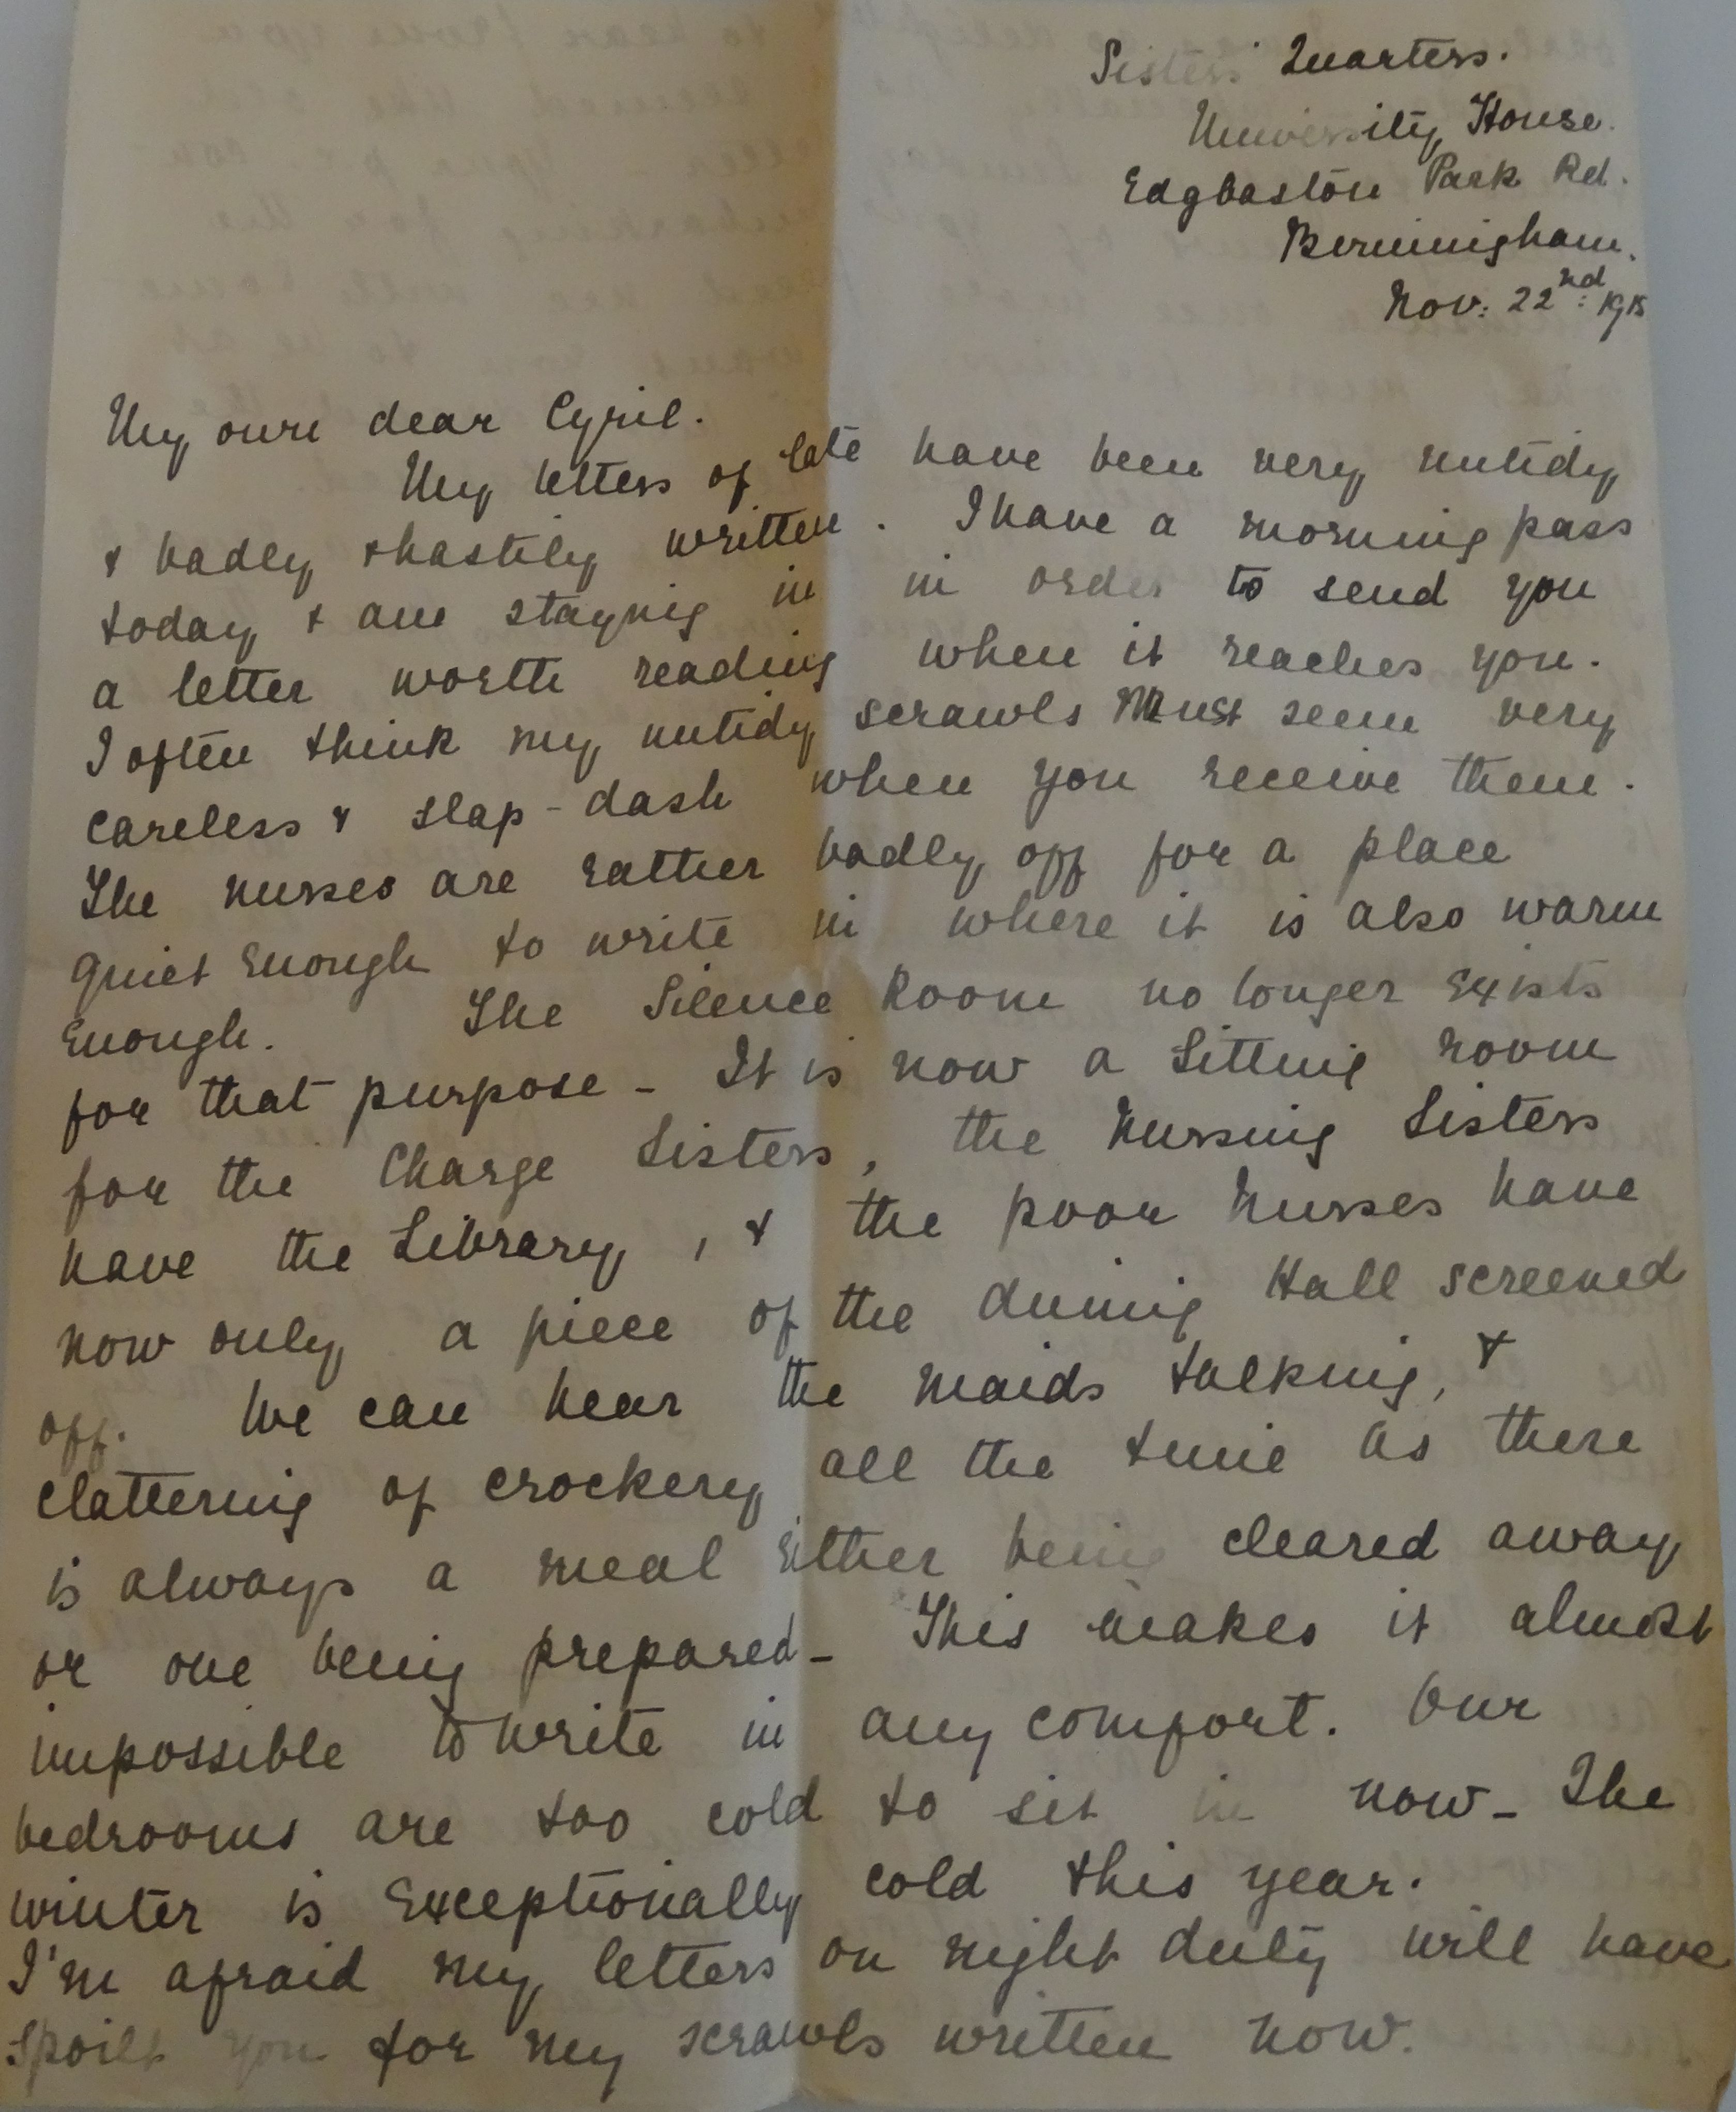 Sisters' Quarters.
University House.
Edgbaston Park Rd.
Birmingham.
Nov: 22nd: 1915
My own dear Cyril.
My letters of late have been very untidy
& badly & hastily written. I have a morning pass
today & am staying in in order to send you
a letter worth reading when it reaches you.
I often think my untidy scrawls must seem very
careless & slap-dash when you receive them.
The nurses are rather badly off for a place
quiet enough to write in where it is also warm
enough. The Silence Room no longer exists
for that purpose - It is now a Sitting room
for the Charge Sisters, the Nursing Sisters
have the Library, & the poor Nurses have
now only a piece of the dining Hall screened
off. We can hear the maids talking, &
clattering of crockery all the time as there
is always a meal either being cleared away
or one being prepared - This makes it almost
impossible to write in any comfort. Our
bedrooms are too cold to sit in now - The
winter is exceptionally cold this year.
I'm afraid my letters on night duty will have
spoilt you for my scrawls written now.